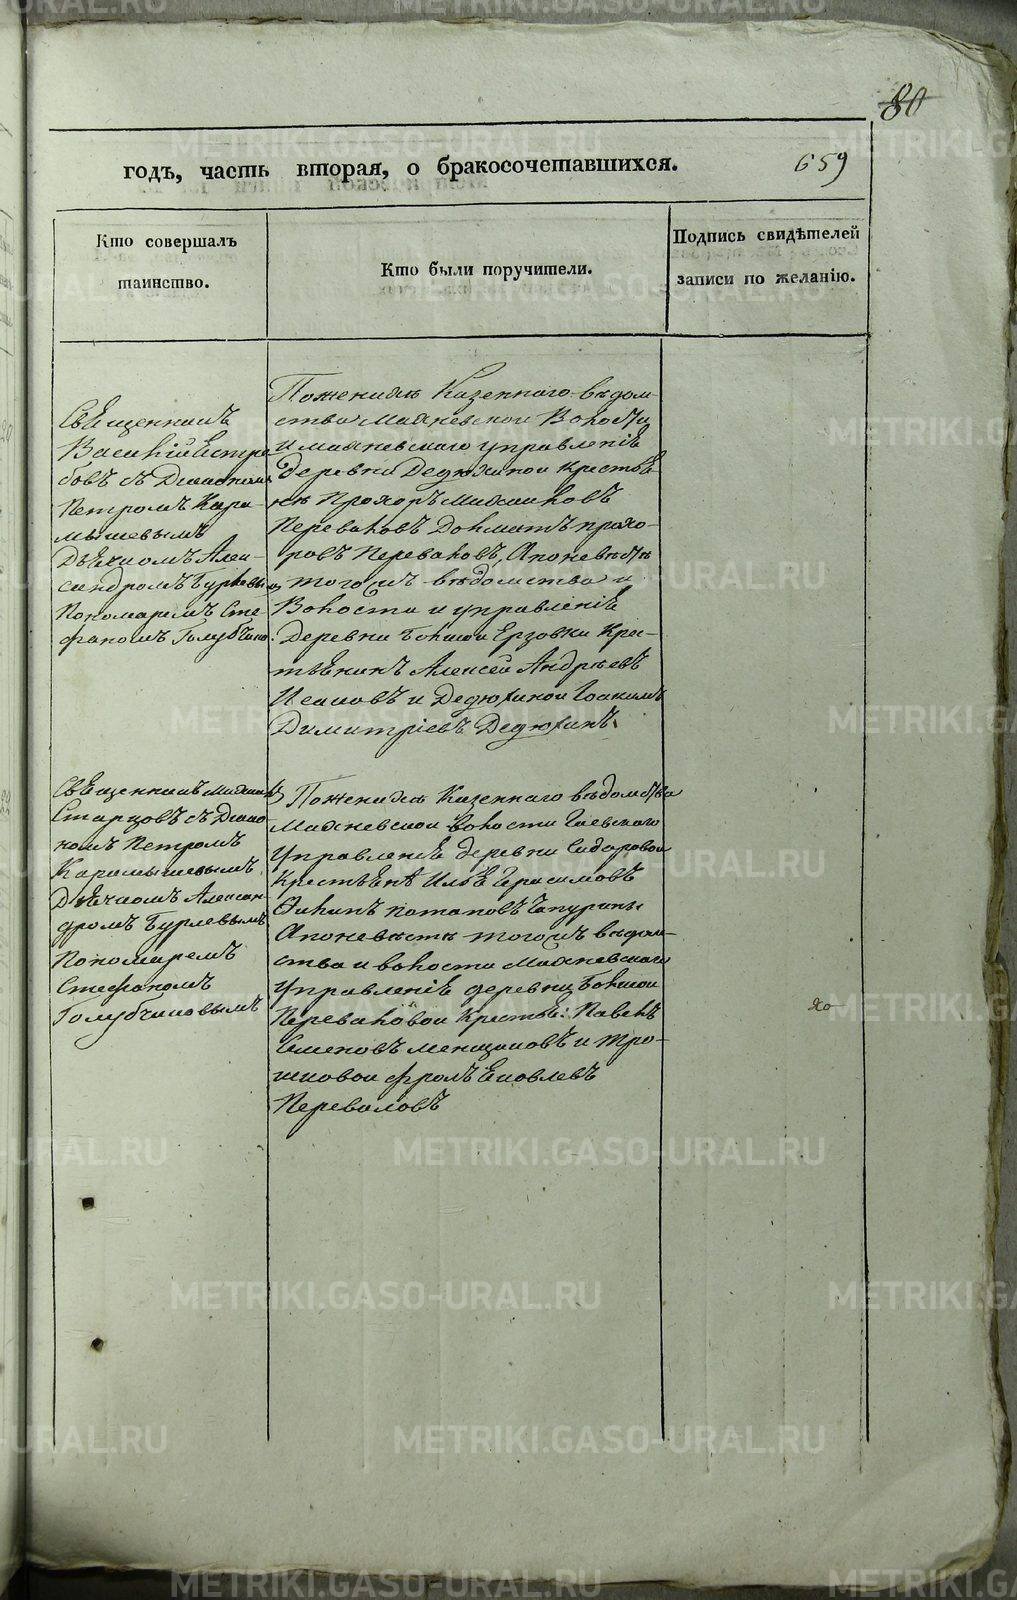 80
годъ, часть вторая, о бракосочетавшихся.
659
Кто совершалъ
таинство.
Кто были поручители.
Подпись свидѣтелей
записи по желанію.
Священникъ
Василій
бовъ съ Діакономъ
Петромъ Кара-
мышевымъ
Дьячкомъ Алек-
сандромъ Бурлевым
Пономаремъ Сте-
фаномъ Голубчико:
По женихѣ Казеннаго вѣдом-
ства Махневской Волости
и махневскаго управленія
деревни Дедюхиной крестья
не Прохоръ Михаиловъ
Переваловъ Долматъ прохо-
ровъ Переваловъ, А по невѣстѣ
того жъ вѣдомства и
Волости и управленія
Деревни Большой Ерзовки Крес-
тьянинъ Алексей Андрѣевъ
Исаковъ и Дедюхиной Іоакимъ
Димитріевъ Дедюхинъ.
Священникъ Михаилъ
Старцовъ съ Діако
номъ Петромъ
Карамышевымъ
Дьячкомъ Алексан
дромъ Бурлевымъ
Пономаремъ
Стефаномъ
Голубчиковымъ
По женихѣ Казеннаго вѣдомства
Махневской волости Гаевскаго
Управленія деревни Сидоровой
Крестьяне Илья Герасимовъ
Филипъ потаповъ Чапурины
А по невѣстѣ того жъ вѣдом-
ства и волости Махневскаго
Управленія деревни Большой
Переваловой Крестья: Павелъ
Семеновъ меншиковъ и Тро-
шковой фролъ Яковлевъ
Переваловъ
METRIKI.GASO-URAL.RU